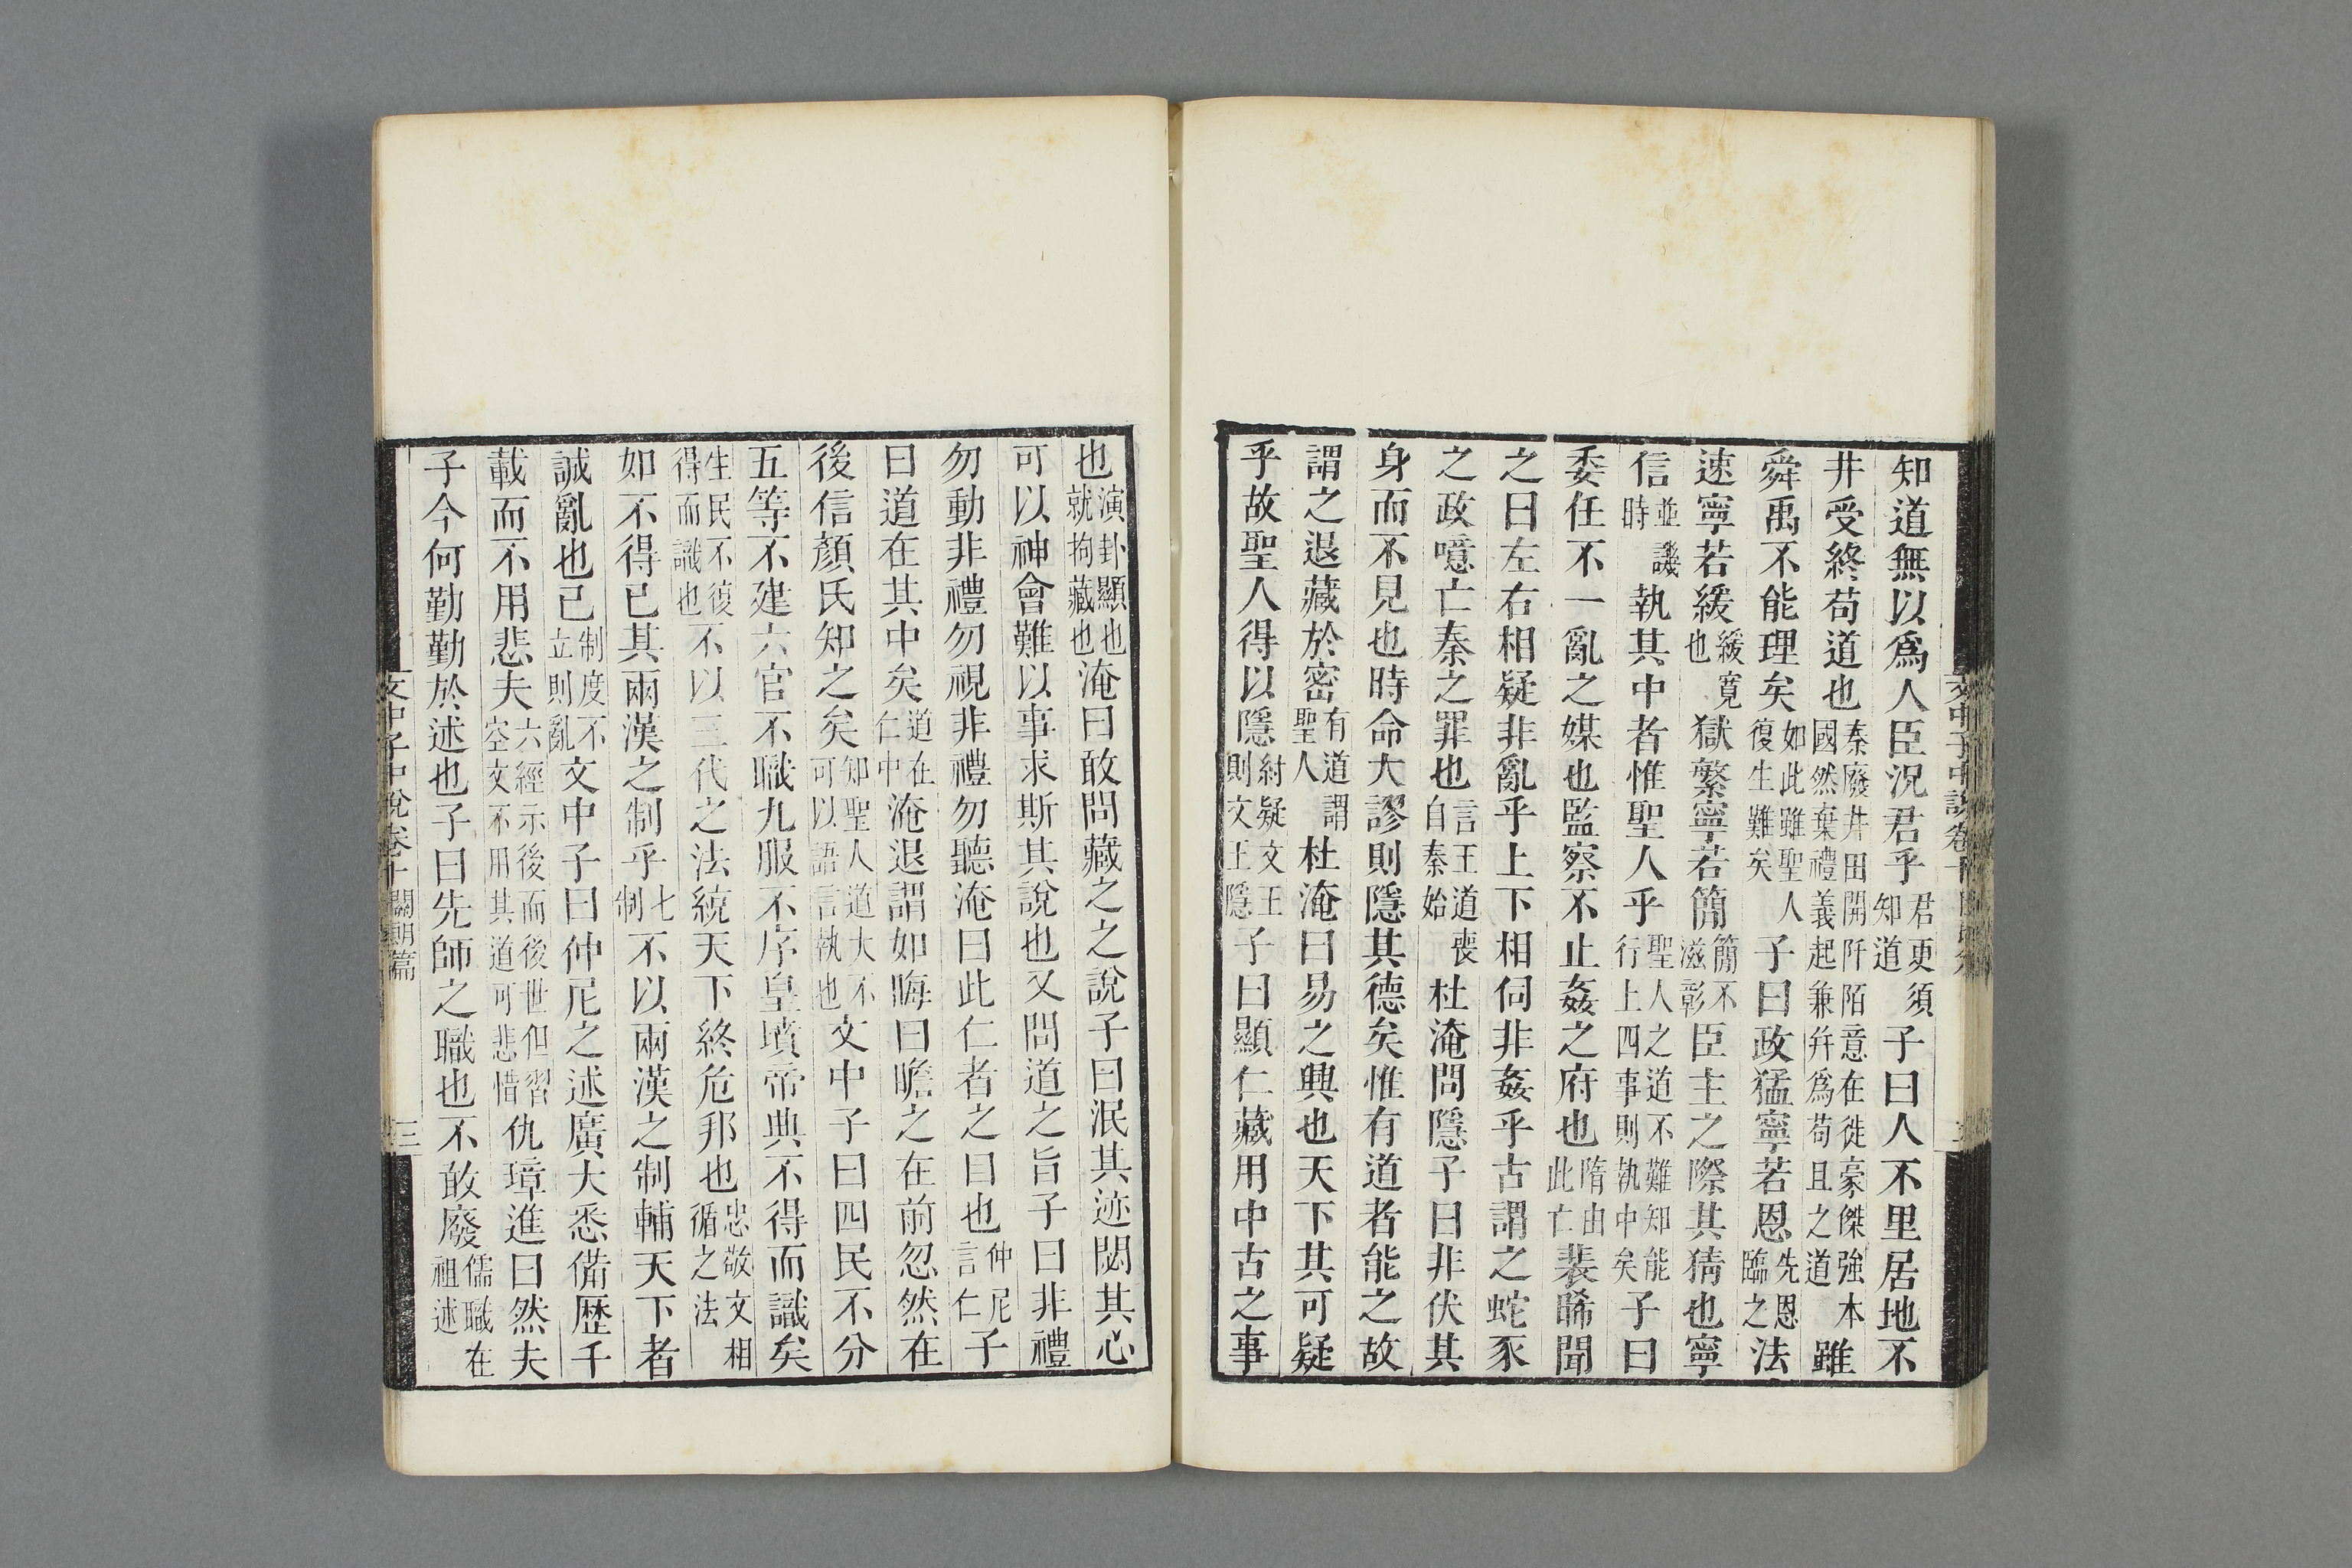 知道無以爲人臣況君乎君更須知道子曰人不里居地不
井受終苟道也秦廢井田開阡陌意在徙豪傑強本國然棄禮義起兼并爲苟且之道雖
舜禹不能理矣如此雖聖人復生難矣子曰政猛寧若恩先恩臨之法
速寧若緩緩寬也獄繁寧若簡簡不滋彰臣主之際其猜也寧
信並譏時執其中者惟聖人乎聖人之道不難知能行上四事則執中矣子曰
委任不一亂之媒也監察不止姦之府也隋由此亡裴晞聞
之曰左右相疑非亂乎上下相伺非姦乎古謂之蛇豕
之政噫亡秦之罪也言王道喪自秦始杜淹問隱子曰非伏其
身而不見也時命大謬則隱其德矣惟有道者能之故
謂之退藏於密有道謂聖人杜淹曰易之興也天下其可疑
乎故聖人得以隱紂疑文王則文王隱子曰顯仁藏用中古之事
也演卦顯也就拘藏也淹曰敢問藏之之說子曰泯其迹閟其心
可以神會難以事求斯其說也又問道之旨子曰非禮
勿動非禮勿視非禮勿聽淹曰此仁者之曰也仲尼言仁子
曰道在其中矣道在仁中淹退謂如晦曰瞻之在前忽然在
後信顏氏知之矣知聖人道大不可以語言執也文中子曰四民不分
五等不建六官不職九服不序皇墳帝典不得而識矣
生民不復得而識也不以三代之法統天下終危邦也忠敬文相循之法
如不得已其兩漢之制乎七制不以兩漢之制輔天下者
誠亂也已制度不立則亂文中子曰仲尼之述廣大悉備歷千
載而不用悲夫六經示後而後世但習空文不用其道可悲惜仇璋進曰然夫
子今何勤勤於述也子曰先師之職也不敢廢儒職在祖述
文中子中說卷十關朗篇
三